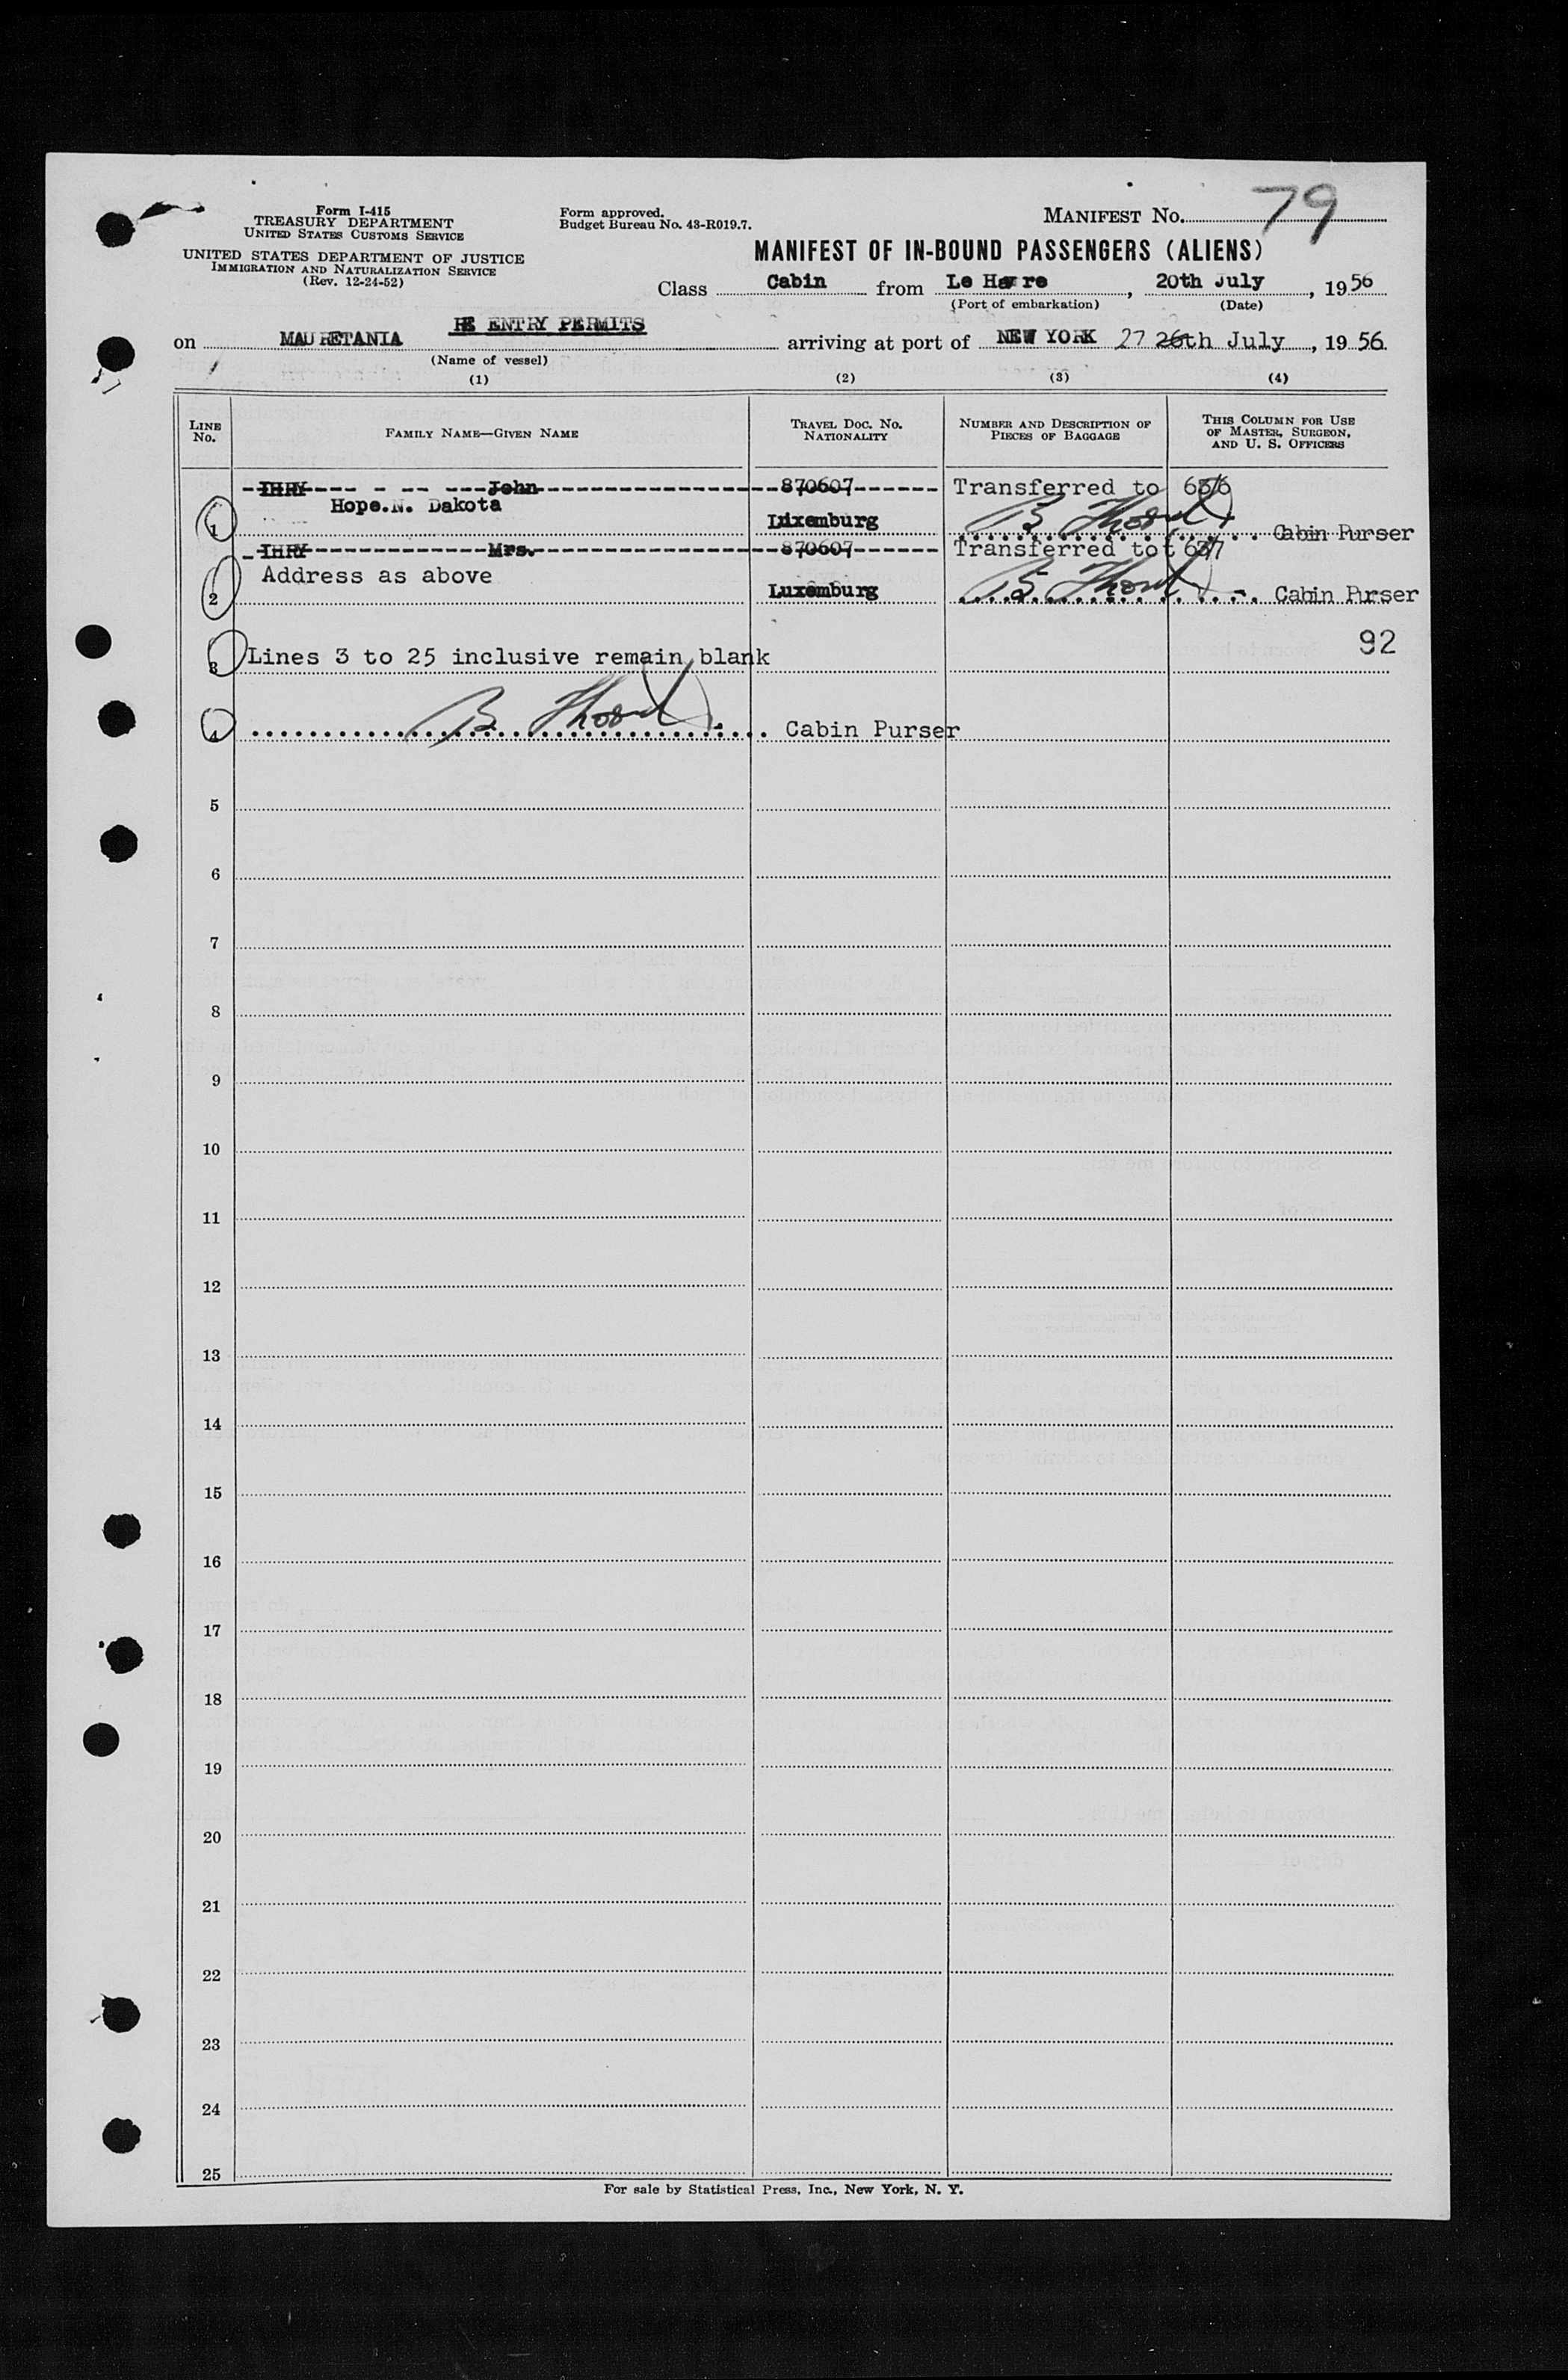 Form I-415
TREASURY DEPARTMENT
UNITED STATES CUSTOMS SERVICE
UNITED STATES DEPARTMENT OF JUSTICE
IMMIGRATION AND NATURALIZATION SERVICE
(Rev. 12-24-52)
Form approved.
Budget Bureau No. 43-R019.7.
MANIFEST NO. 79
MANIFEST OF IN-BOUND PASSENGERS (ALIENS)
Class Cabin from Le Havre, 20th July, 1956
(Port of embarkation) (Date)
RE ENTRY PERMITS
on MAURETANIA arriving at port of NEW YORK 27 26th July, 1956.
(Name of vessel)
(1) (2) (3) (4)
LINE No. FAMILY NAME—GIVEN NAME TRAVEL DOC. NO. NATIONALITY NUMBER AND DESCRIPTION OF PIECES OF BAGGAGE THIS COLUMN FOR USE OF MASTER, SURGEON, AND U. S. OFFICERS
IHRY John 870607 Transferred to 63/6
Hope.N. Dakota
1 Luxemburg Cabin Purser
IHRY Mrs. 870607 Transferred to 63/7
Address as above
2 Luxemburg Cabin Purser
92
3 Lines 3 to 25 inclusive remain blank
4 Cabin Purser
5
6
7
8
9
10
11
12
13
14
15
16
17
18
19
20
21
22
23
24
25
For sale by Statistical Press, Inc., New York, N. Y.